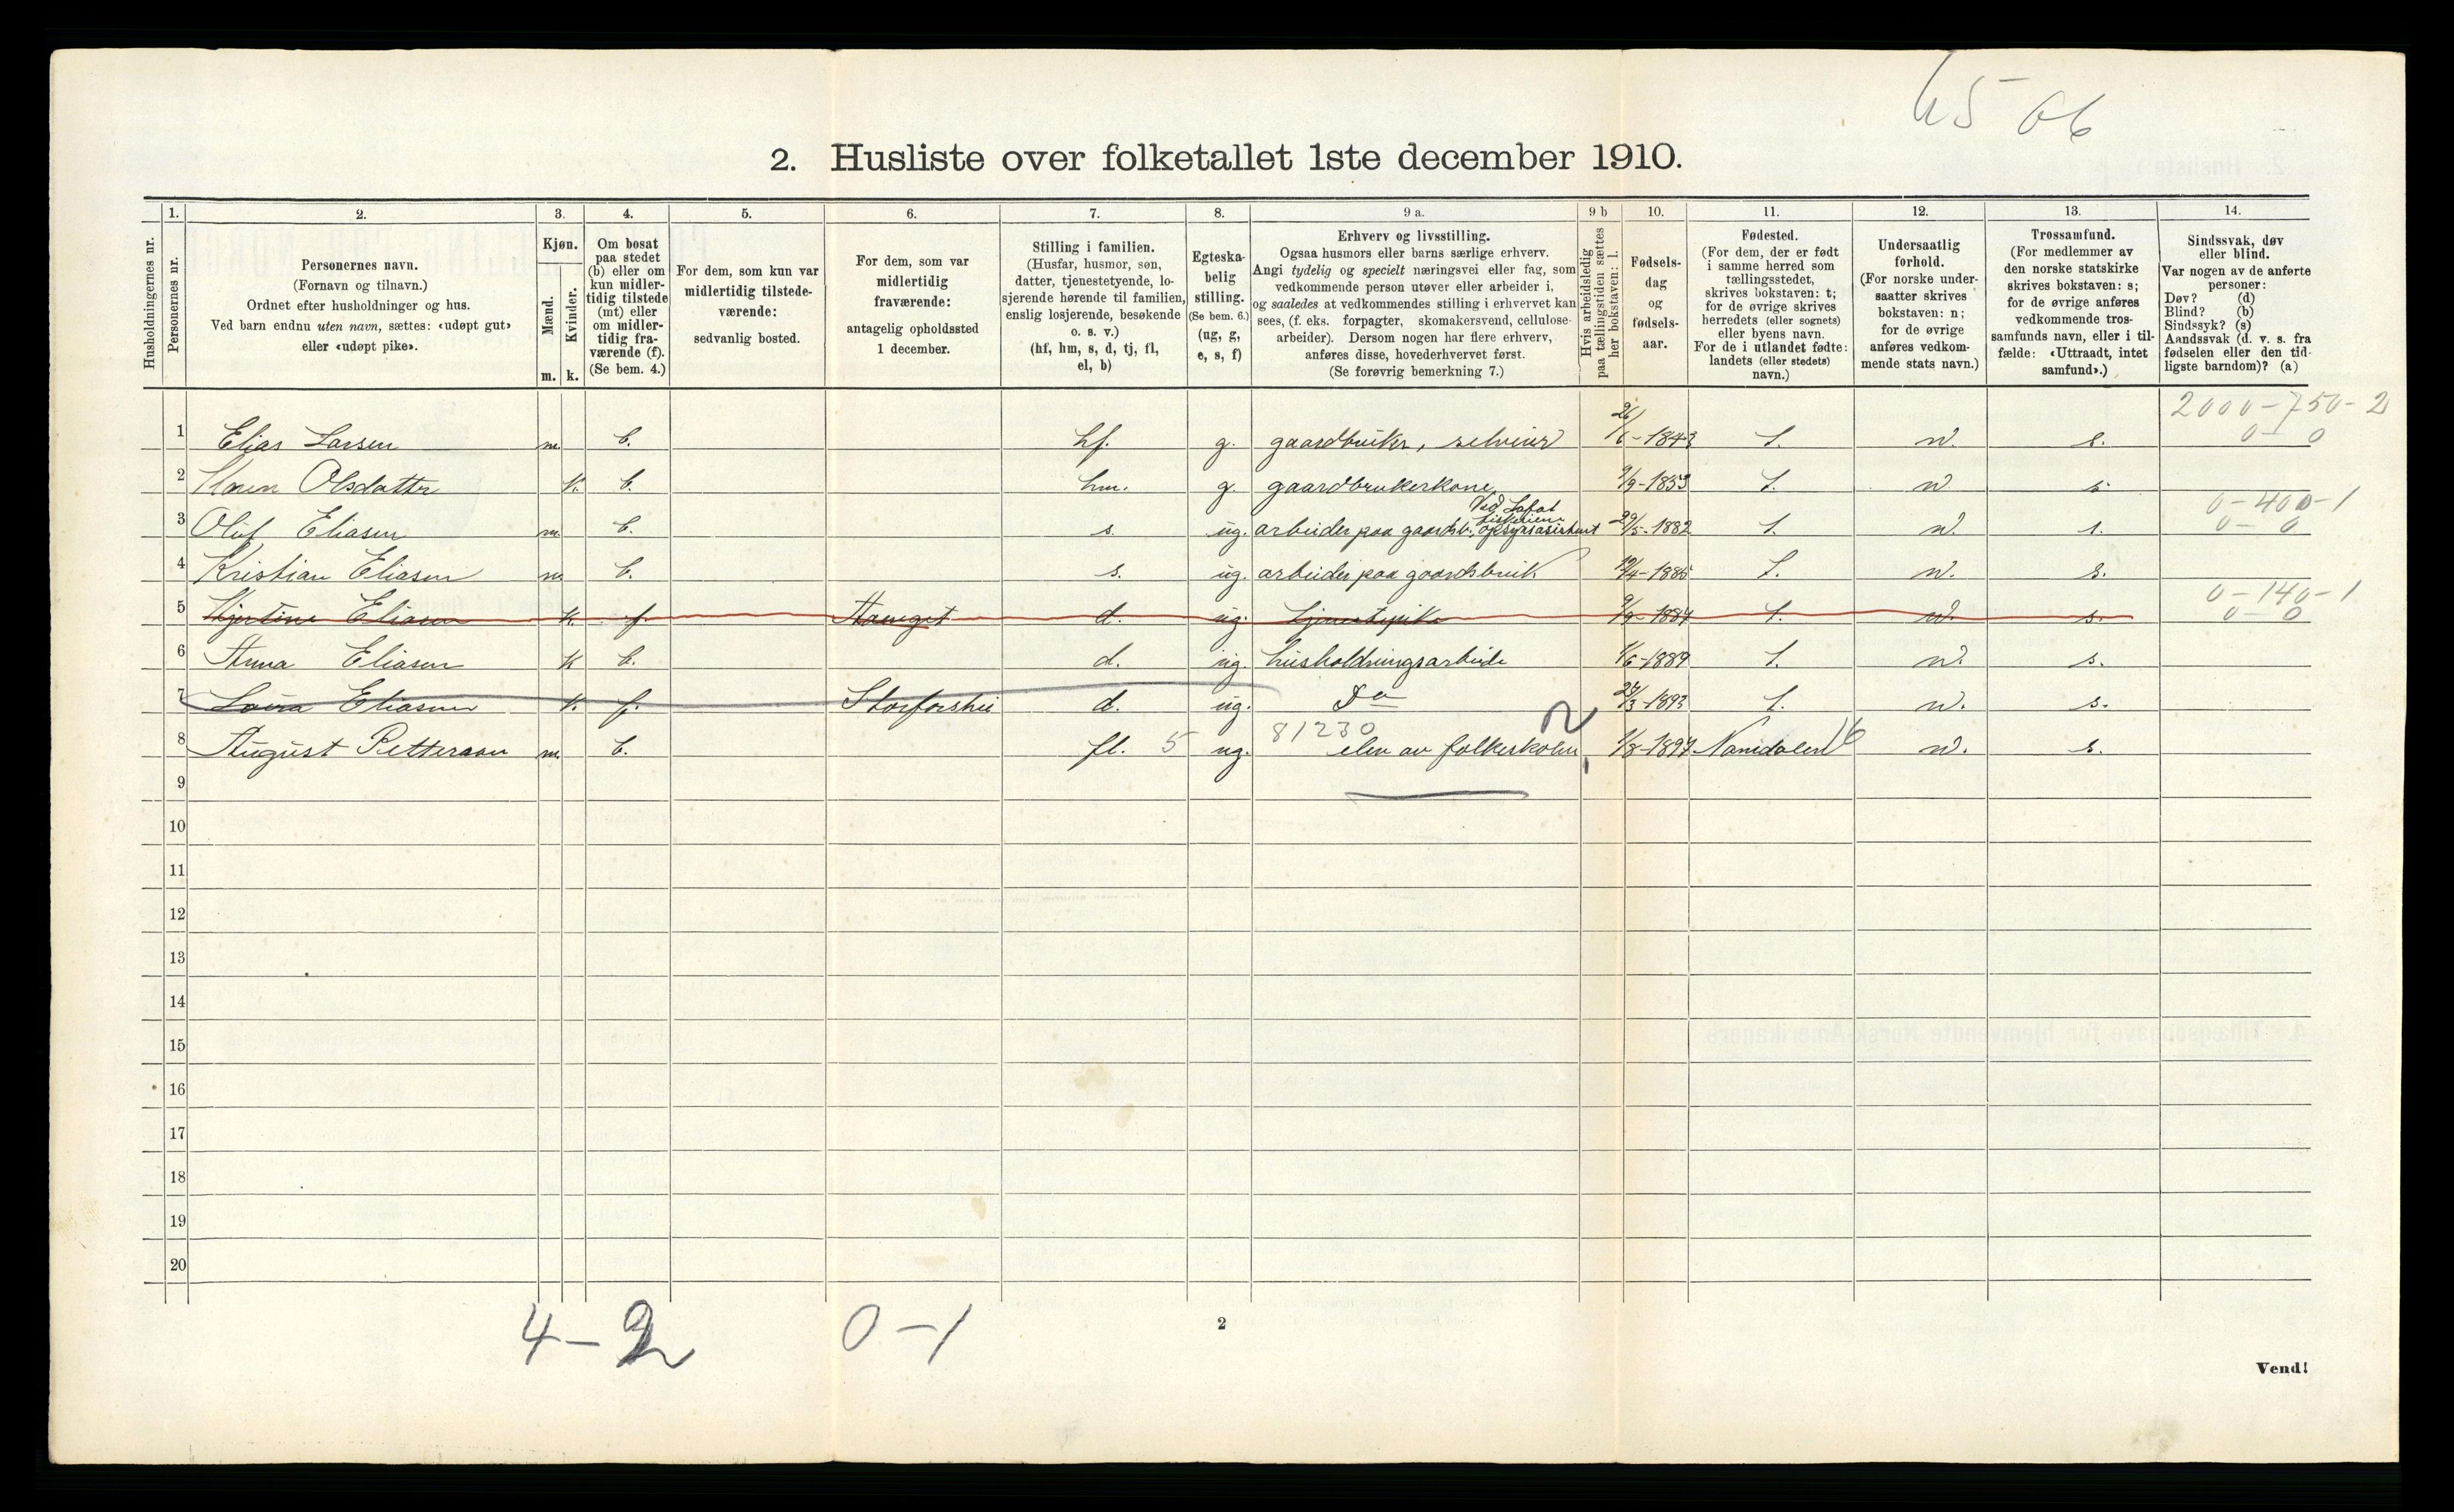 65 06
2. Husliste over folketallet 1ste december 1910.
Husholdningernes nr.
1.
Personernes nr.
2.
Personernes navn.
(Fornavn og tilnavn.)
Ordnet efter husholdninger og hus.
Ved barn endnu uten navn, sættes: «udøpt gut»
eller «udøpt pike».
3.
Kjøn.
Mænd.
Kvinder.
m. k.
4.
Om bosat
paa stedet
(b) eller om
kun midler-
tidig tilstede
(mt) eller
om midler-
tidig fra-
værende (f).
(Se bem. 4.)
5.
For dem, som kun var
midlertidig tilstede-
værende:
sedvanlig bosted.
6.
For dem, som var
midlertidig
fraværende:
antagelig opholdssted
1 december.
7.
Stilling i familien.
(Husfar, husmor, søn,
datter, tjenestetyende, lo-
sjerende hørende til familien,
enslig losjerende, besøkende
o. s. v.)
(hf, hm, s, d, tj, fl,
el, b)
8.
Egteska-
belig
stilling.
(Se bem. 6.)
(ug, g,
e, s, f)
9 a.
Erhverv og livsstilling.
Ogsaa husmors eller barns særlige erhverv.
Angi tydelig og specielt næringsvei eller fag, som
vedkommende person utøver eller arbeider i,
og saaledes at vedkommendes stilling i erhvervet kan
sees, (f. eks. forpagter, skomakersvend, cellulose-
arbeider). Dersom nogen har flere erhverv,
anføres disse, hovederhvervet først.
(Se forøvrig bemerkning 7.)
9 b
Hvis arbeidsledig
paa tællingstiden sættes
her bokstaven: l.
10.
Fødsels-
dag
og
fødsels-
aar.
11.
Fødested.
(For dem, der er født
i samme herred som
tællingsstedet,
skrives bokstaven: t;
for de øvrige skrives
herredets (eller sognets)
eller byens navn.
For de i utlandet fødte:
landets (eller stedets)
navn.)
12.
Undersaatlig
forhold.
(For norske under-
saatter skrives
bokstaven: n;
for de øvrige
anføres vedkom-
mende stats navn.)
13.
Trossamfund.
(For medlemmer av
den norske statskirke
skrives bokstaven: s;
for de øvrige anføres
vedkommende tros-
samfunds navn, eller i til-
fælde: «Uttraadt, intet
samfund».)
14.
Sindssvak, døv
eller blind.
Var nogen av de anførte
personer:
Døv? (d)
Blind? (b)
Sindssyk? (s)
Aandssvak (d. v. s. fra
fødselen eller den tid-
ligste barndom)? (a)
2000-750-2
0- 0
1 Elias Larsen m. b. hf. g. gaardbruker, selveier 26/6-1843 t. n. s.
2 Maren Olsdatter k. b. hm. g. gaardbrukerkone 9/9-1853 t. n. s.
0-400-1
0- 0
3 Oluf Eliasen m. b. s. ug. arbeider paa gaardsb. Ved Lofot fiskeriene opsynsasistent 29/5-1882 t. n. s.
4 Kristian Eliasen m. b. s. ug. arbeider paa gaardsbruk 4-1885 t. n. s.
0-140-1
0- 0
5 Eliasen k. f. d. ug. tjenestepike 9/9-1887 t. n. s.
6 Anna Eliasen k b. d. ug. husholdningsarbeide 1/6-1889 t. n. s.
7 Laura Eliasen k. f. Storforshei d. ug. Do 24/3-1893 t. n. s.
81230
8 August Petterson m. b. fl. 5 ug. elev av folkeskolen 1/8-1897 Namdalen 16 n. s.
9
10
11
12
13
14
15
16
17
18
19
20
4-2 0-1
2
Vend!